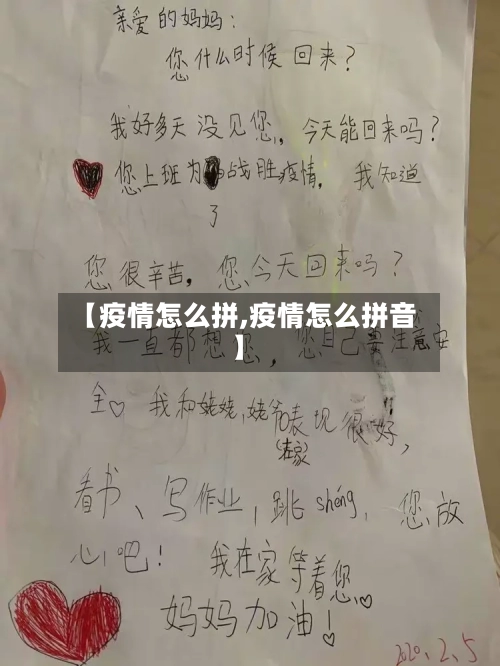 亲爱的妈妈:
您什么时候回来?
我好多天没见您,今天能回来吗?
您上班为了战胜疫情,我知道
您很辛苦,您今天回来吗?
【疫情怎么拼,疫情怎么拼音
】
我一直都想您,您自己要注意安
全♡我和姥姥,姥爷表现很好,
在家
看书、写作业,跳shéng,您放
心吧!我在家等着您♡
妈妈加油!
2020.2.5